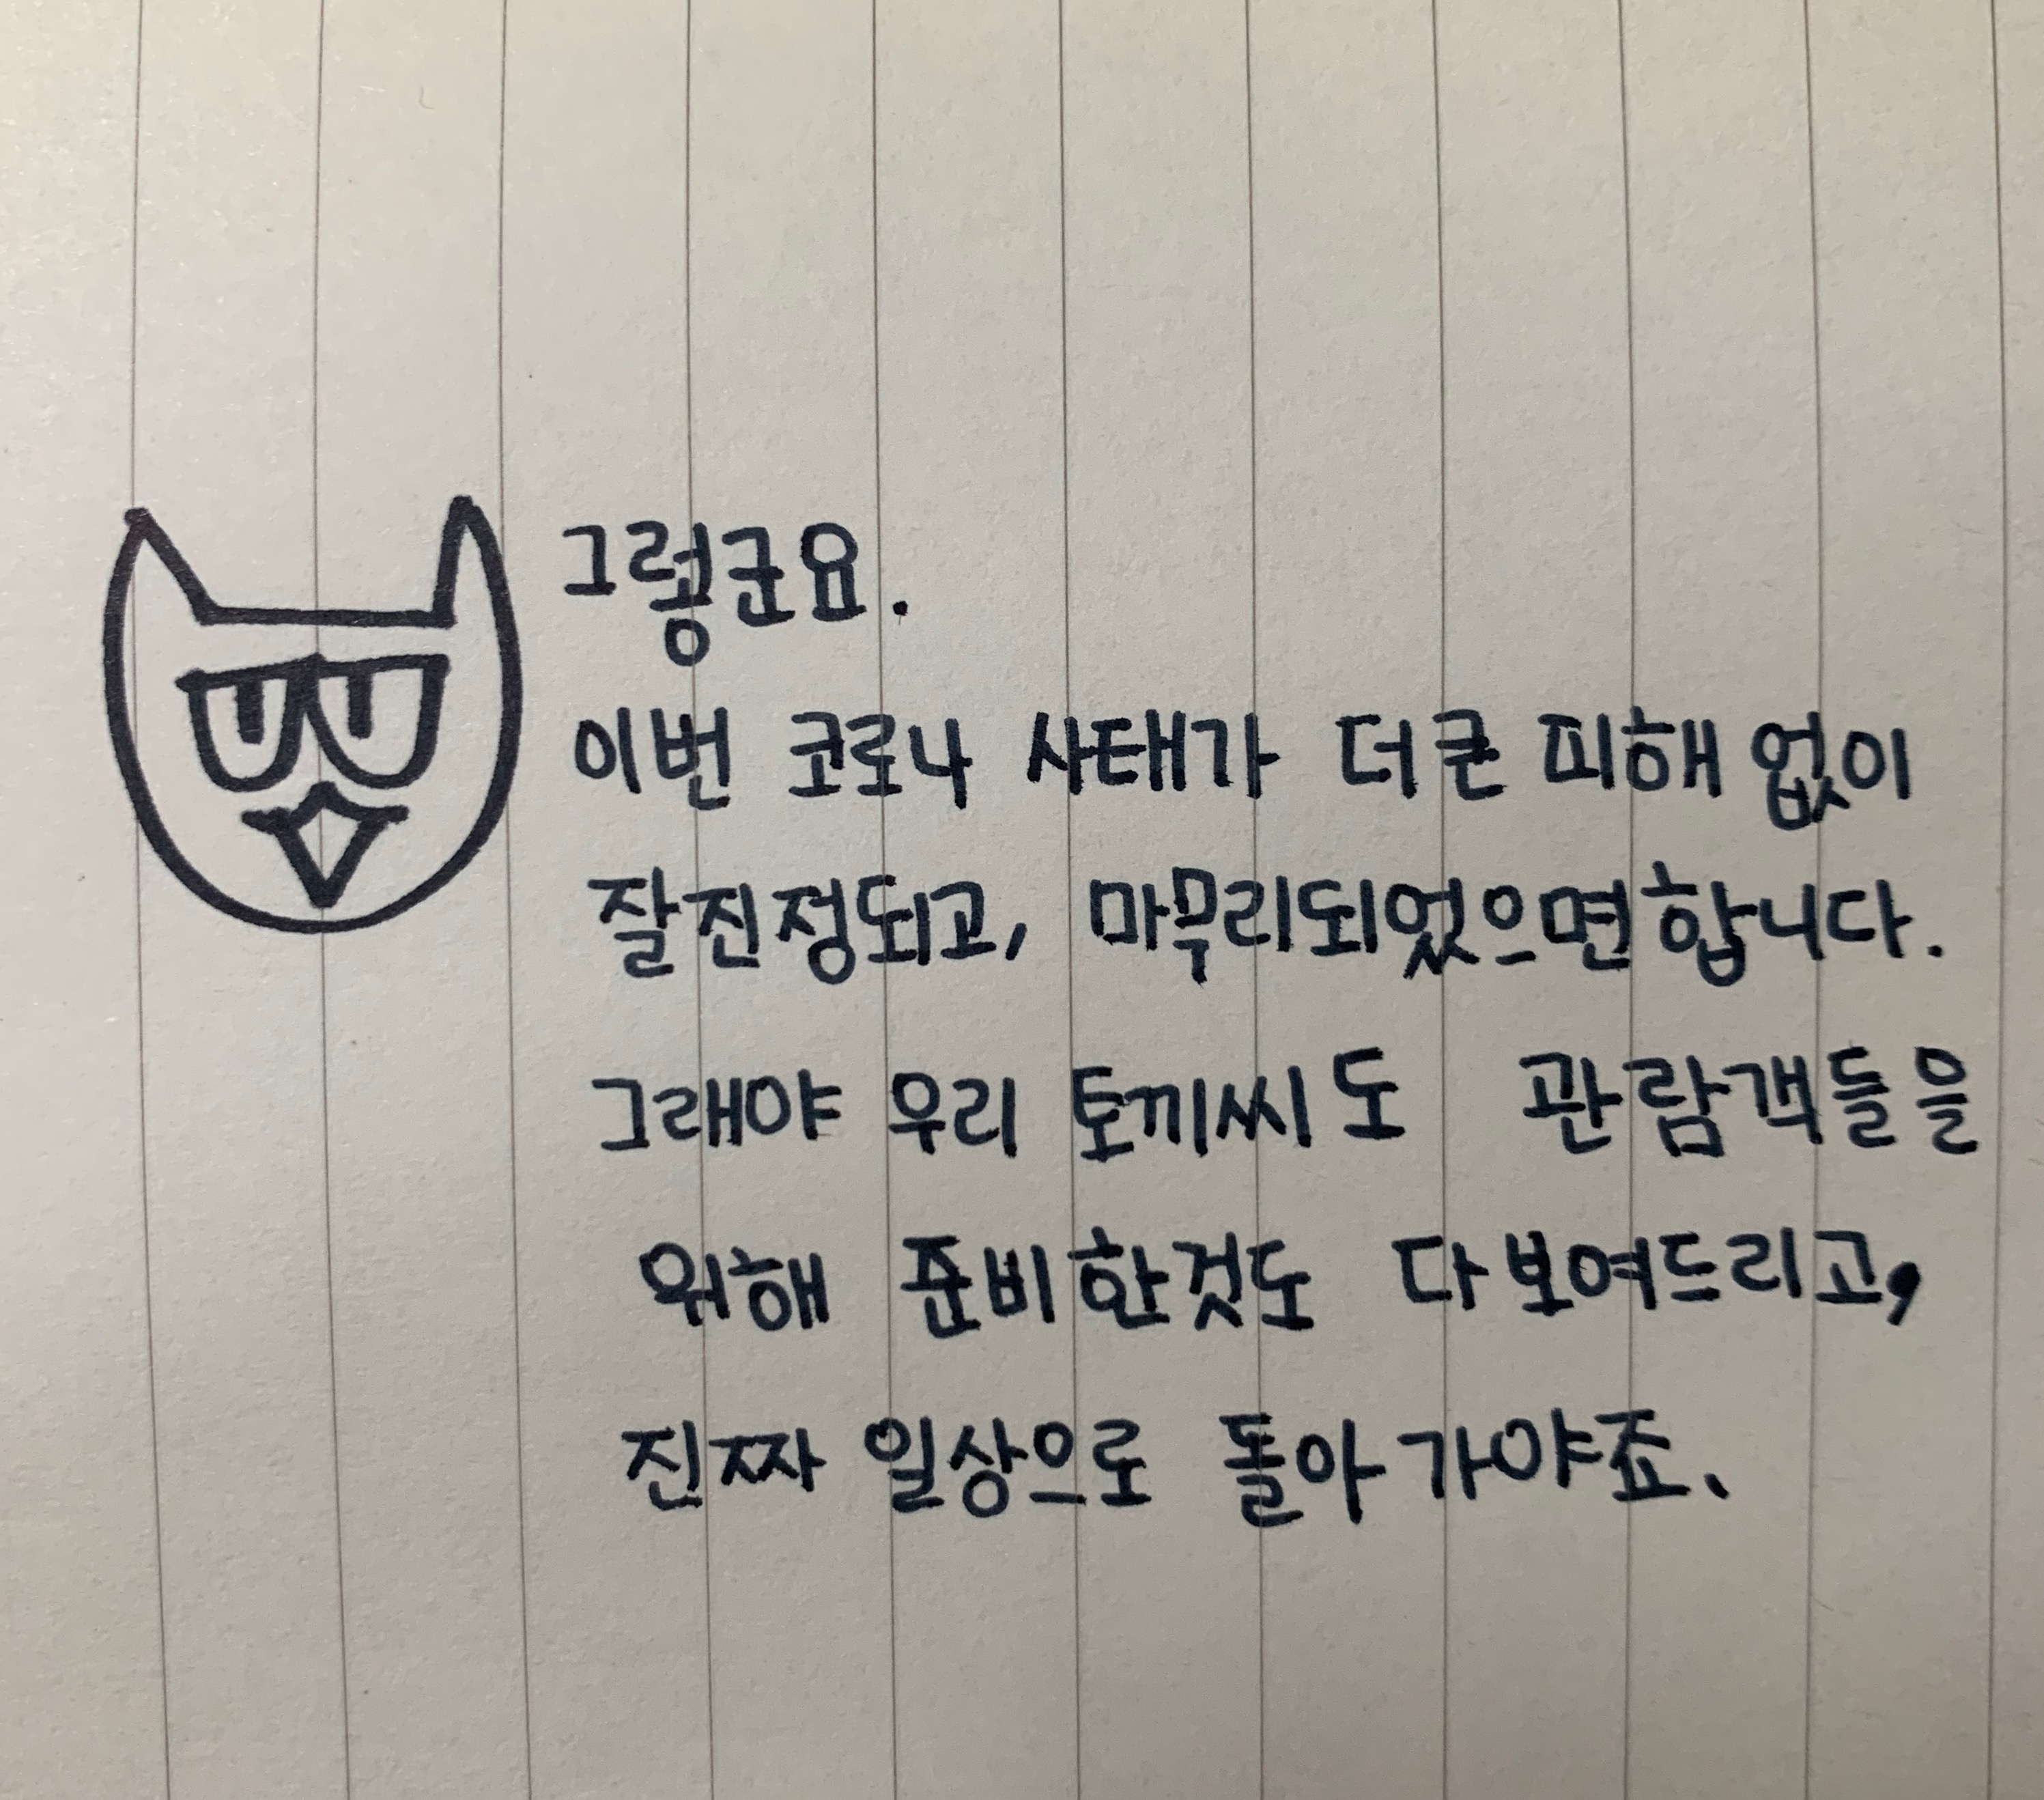 그렁군요.
이번 코로나 사태가 더 큰 피해 없이
잘 진정되고, 마무리되었으면 합니다.
그래야 우리 토끼씨도 관람객들을
위해 준비한것도 다 보여드리고,
진짜 일상으로 돌아 가야죠.